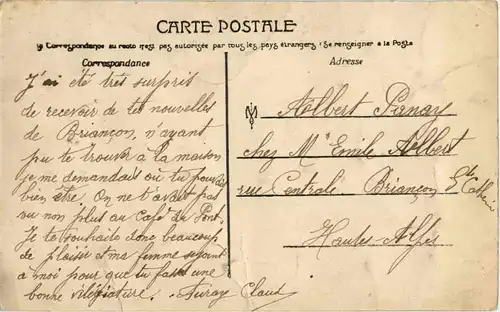 CARTE POSTALE
Correspondance au recto n'est pas autorisée par tous les pays étrangers (Se renseigner à la Poste
Correspondance
Adresse
J'ai été très surpris
de recevoir de tes nouvelles
de Briançon, n'ayant
pu te trouver à la maison
je me demandais où tu pouvais
bien être. On ne t'avait pas
vu non plus au Café du Pont.
Je te souhaite donc beaucoup
de plaisir et ma femme se joint
à moi pour que tu fasse une
bonne villégiature. Auray Claud
M Albert
chez Mr Emile Albert
rue Centrale Briançon Ste Catherine
Hautes-Alpes